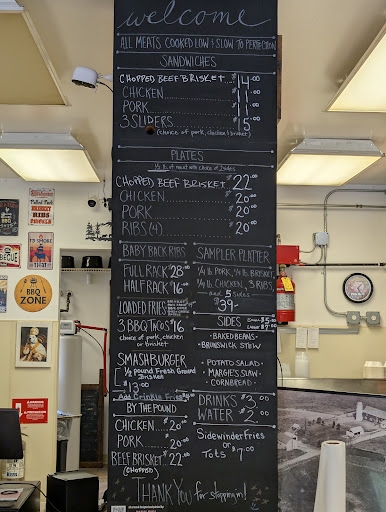 welcome
ALL MEATS COOKED LOW & SLOW TO PERFECTION
SANDWICHES
CHOPPED BEEF BRISKET....$14.00
CHICKEN.................$11.00
PORK....................$11.00
3 SLIDERS...............$15.00
(choice of pork, chicken, brisket)
PLATES
1/2 lb. of meat with choice of 2 sides
CHOPPED BEEF BRISKET...$22.00
CHICKEN................$20.00
PORK...................$20.00
RIBS (4)...............$20.00
BABY BACK RIBS
FULL RACK $28.00
HALF RACK $16.00
LOADED FRIES
3 BBQ TACOS $16
choice of pork, chicken
or brisket
SMASHBURGER
1/2 pound Fresh Ground
Brisket
$13.00
Add Crinkle Fries
BY THE POUND
CHICKEN....$20.00
PORK.......$20.00
BEEF BRISKET $22.00
(CHOPPED)
SAMPLER PLATTER
1/4 lb PORK, 1/4 lb. BRISKET
1/4 lb. CHICKEN, 3 RIBS
And 5 sides
$39.00
SIDES
• BAKED BEANS
• BRUNSWICK STEW
• POTATO SALAD
• MARGIE'S SLAW
• CORNBREAD
DRINKS $3.00
WATER $2.00
Sidewinder Fries
or
Tots $7.00
THANK YOU for stopping in!
BBQ
ZONE